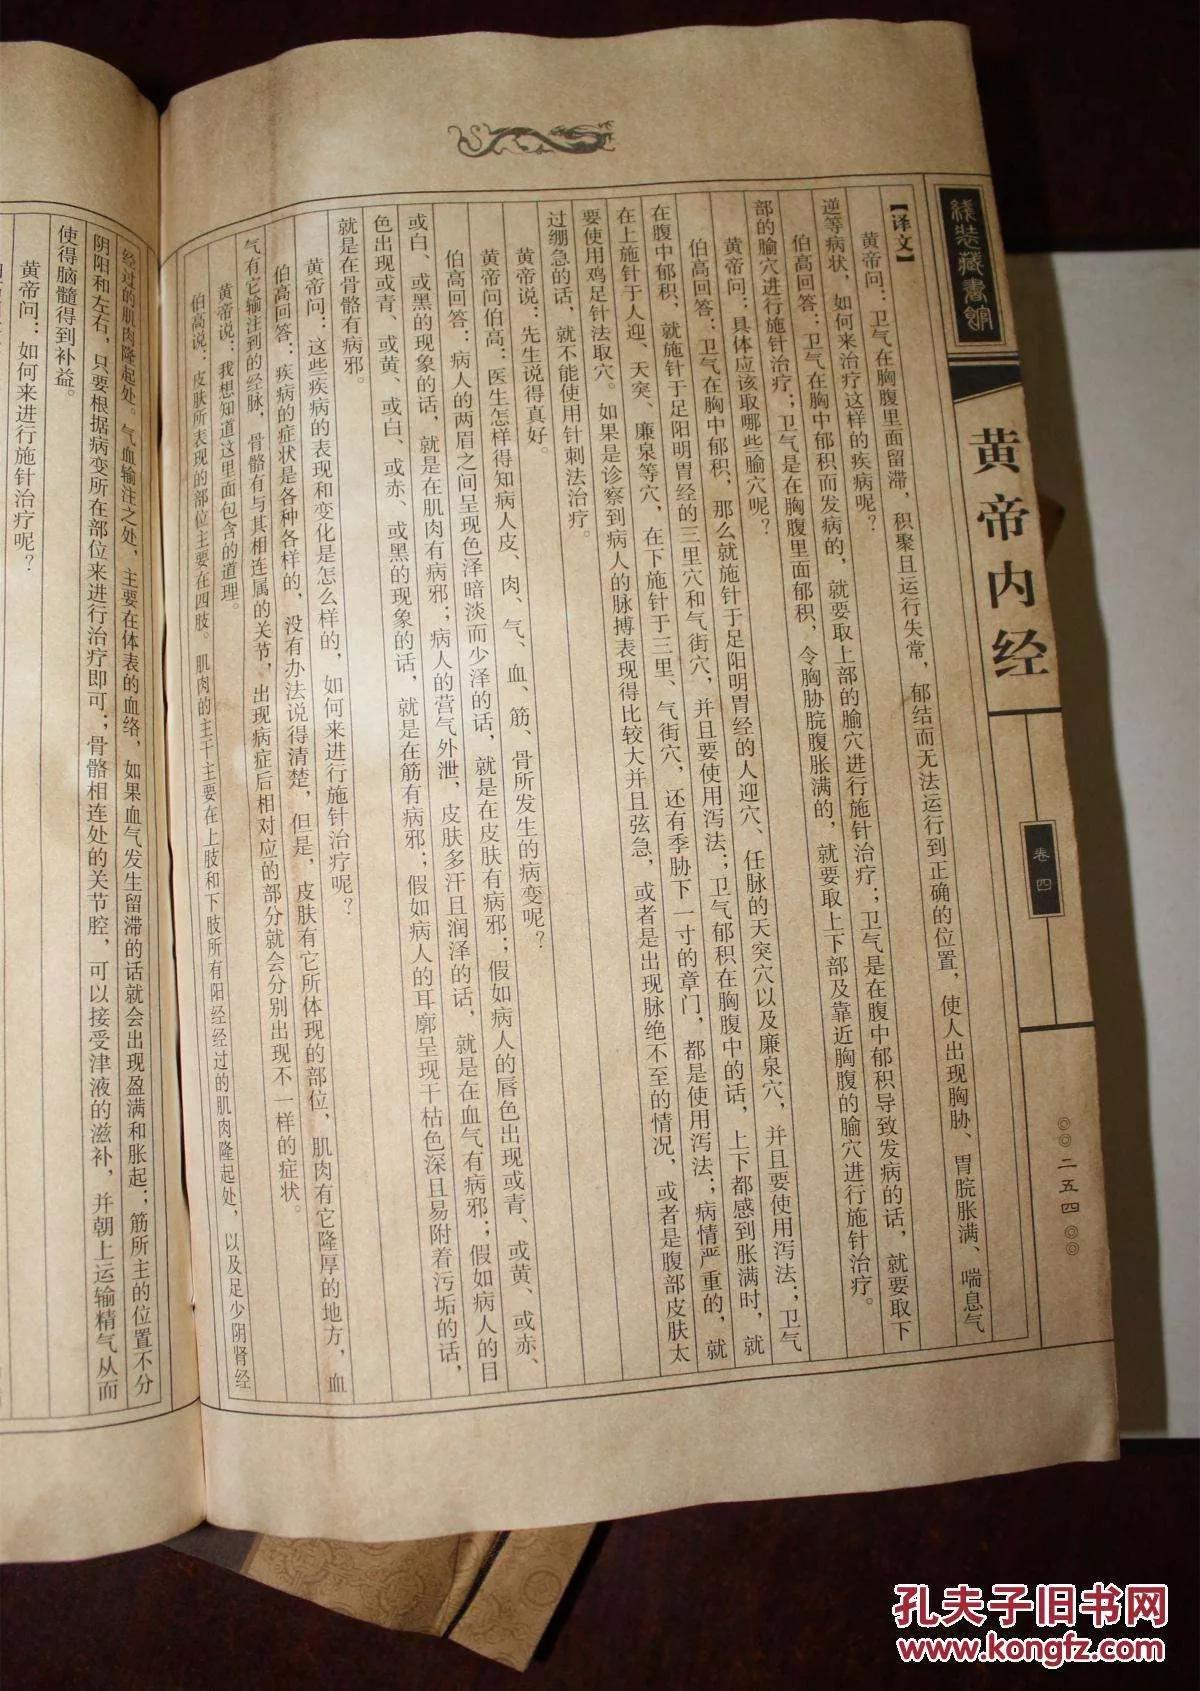 线装藏书馆
黄帝内经
卷四
◎◎二五四◎◎
【译文】
黄帝问：卫气在胸腹里面留滞，积聚且运行失常，郁结而无法运行到正确的位置，使人出现胸胁、胃脘胀满、喘息气
逆等病状，如何来治疗这样的疾病呢？
伯高回答：卫气在胸中郁积而发病的，就要取上部的腧穴进行施针治疗；卫气是在腹中郁积导致发病的话，就要取下
部的腧穴进行施针治疗；卫气是在胸腹里面郁积，令胸胁脘腹胀满的，就要取上下部及靠近胸腹的腧穴进行施针治疗。
黄帝问：具体应该取哪些腧穴呢？
伯高回答：卫气在胸中郁积，那么就施针于足阳明胃经的人迎穴、任脉的天突穴以及廉泉穴，并且要使用泻法；卫气
在腹中郁积，就施针于足阳明胃经的三里穴和气街穴，并且要使用泻法；卫气郁积在胸腹中的话，上下都感到胀满时，就
在上施针于人迎、天突、廉泉等穴，在下施针于三里、气街穴，还有季胁下一寸的章门，都是使用泻法；病情严重的，就
要使用鸡足针法取穴。如果是诊察到病人的脉搏表现得比较大并且弦急，或者是出现脉绝不至的情况，或者是腹部皮肤太
过绷急的话，就不能使用针刺法治疗。
黄帝说：先生说得真好。
黄帝问伯高：医生怎样得知病人皮、肉、气、血、筋、骨所发生的病变呢？
伯高回答：病人的两眉之间呈现色泽暗淡而少泽的话，就是在皮肤有病邪；假如病人的唇色出现或青、或黄、或赤、
或白、或黑的现象的话，就是在肌肉有病邪；病人的营气外泄，皮肤多汗且润泽的话，就是在血气有病邪；假如病人的目
色出现或青、或黄、或白、或赤、或黑的现象的话，就是在筋有病邪；假如病人的耳廓呈现干枯色深且易附着污垢的话，
就是在骨骼有病邪。
黄帝问：这些疾病的表现和变化是怎么样的，如何来进行施针治疗呢？
伯高回答：疾病的症状是各种各样的，没有办法说得清楚，但是，皮肤有它所体现的部位，肌肉有它隆厚的地方，血
气有它输注到的经脉，骨骼有与其相连属的关节，出现病症后相对应的部分就会分别出现不一样的症状。
黄帝说：我想知道这里面包含的道理。
伯高说：皮肤所表现的部位主要在四肢。肌肉的主干主要在上肢和下肢所有阳经经过的肌肉隆起处，以及足少阴肾经
经过的肌肉隆起处。气血输注之处，主要在体表的血络，如果血气发生留滞的话就会出现盈满和胀起；筋所主的位置不分
阴阳和左右，只要根据病变所在部位来进行治疗即可；骨骼相连处的关节腔，可以接受津液的滋补，并朝上运输精气从而
使得脑髓得到补益。
黄帝问：如何来进行施针治疗呢？
孔夫子旧书网
www.kongfz.com